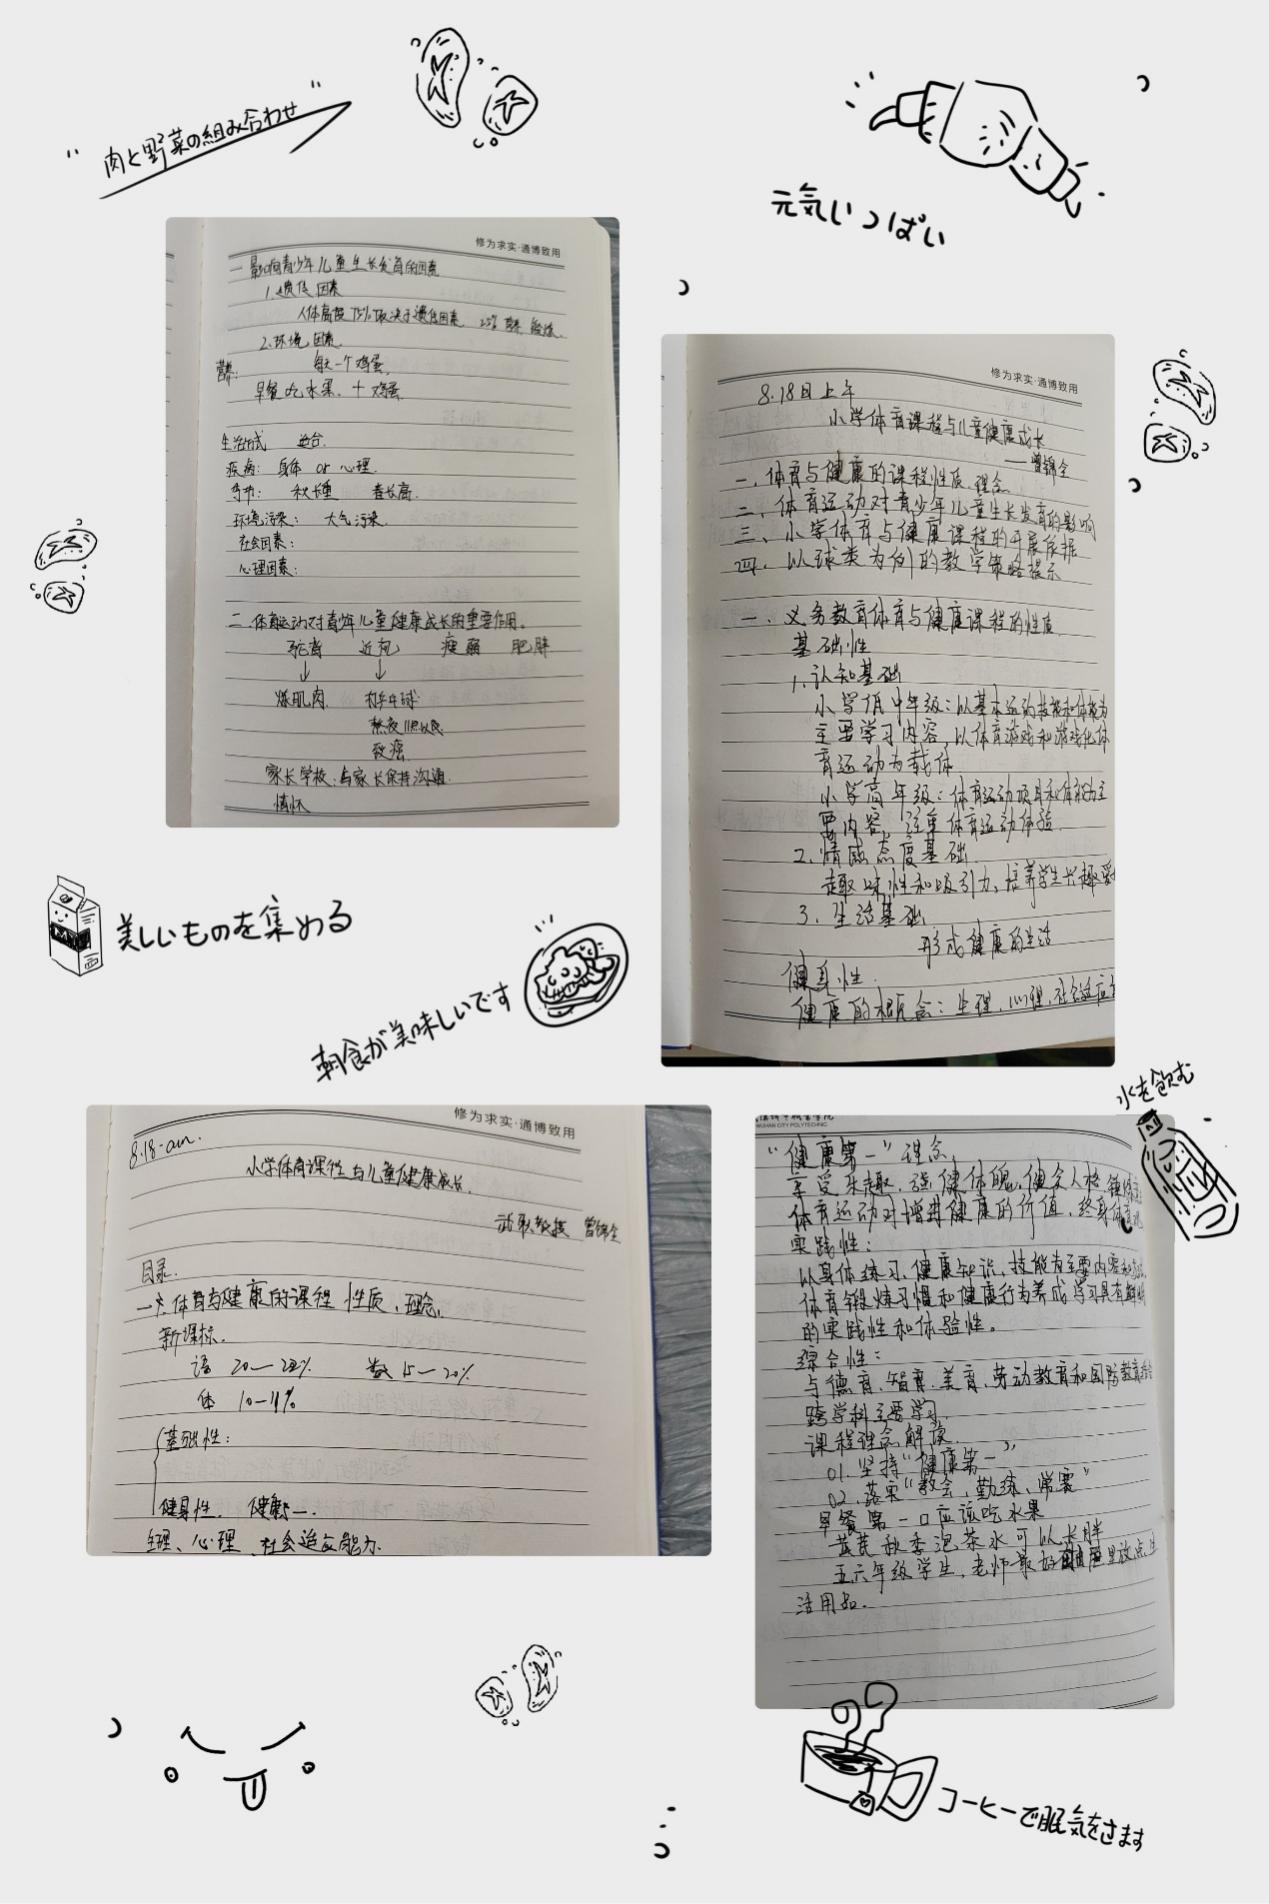 "肉と野菜の組み合わせ"
元気いっぱい
修为求实·通博致用
一 影响青少年儿童生长发育的因素
1.遗传因素
人体高度75%取决于遗传因素 25% 锻炼.
2.环境因素
营养: 每天一个鸡蛋.
早餐吃水果 + 鸡蛋
生活方式
疾病: 身体 or 心理.
季节: 秋长重 春长高.
环境污染: 大气污染.
社会因素:
心理因素:
二.体育运动对青少年儿童健康成长的重要作用.
驼背 近视 瘦弱 肥胖
↓ ↓
练肌肉 打乒乓球
致癌
家长学校:与家长保持沟通.
情怀
修为求实·通博致用
8.18日上午
小学体育课程与儿童健康成长
——曾锦全
一.体育与健康的课程性质.理念
二、体育运动对青少年儿童生长发育的影响
三、小学体育与健康课程的开展依据
四.以球类为例的教学策略提示
一.义务教育体育与健康课程的性质
基础性
1.认知基础
小学低中年级:以基本运动技能和体能为
主要学习内容,以体育游戏和游戏化体
育运动为载体
小学高年级:体育运动项目和体能为主
要内容,注重体育运动体验.
2.情感态度基础
趣味性和吸引力,培养学生兴趣爱
3.生活基础
形成健康的生活
健身性
健康的概念:生理,心理,社会适应
美しいものを集める
朝食が美味しいです
修为求实·通博致用
8.18-am.
小学体育课程与儿童健康成长.
教授 曾锦全
目录.
一.体育与健康的课程性质.理念.
新课标.
语 20—22% 数 15—20%
体 10—11%
基础性:
健身性.
生理、心理 社会适应能力.
水を飲む
WUHAN CITY POLYTECHNIC
"健康第一"理念
享受乐趣,强健体魄,健全人格
体育运动对增进健康的价值,终身体育
实践性:
以身体练习,健康知识,技能为主要内容和
体育锻炼习惯和健康行为养成学习具有鲜明
的实践性和体验性。
综合性:
与德育.智育.美育.劳动教育和国防教育结合
跨学科主要学习.
课程理念解读
01.坚持"健康第一"
02.落实"教会,勤练,常赛"
早餐第一口应该吃水果
黄芪秋季泡茶水可以长胖
五六年级学生,老师最好里放点生
活用品.
コーヒーで眠気をさます